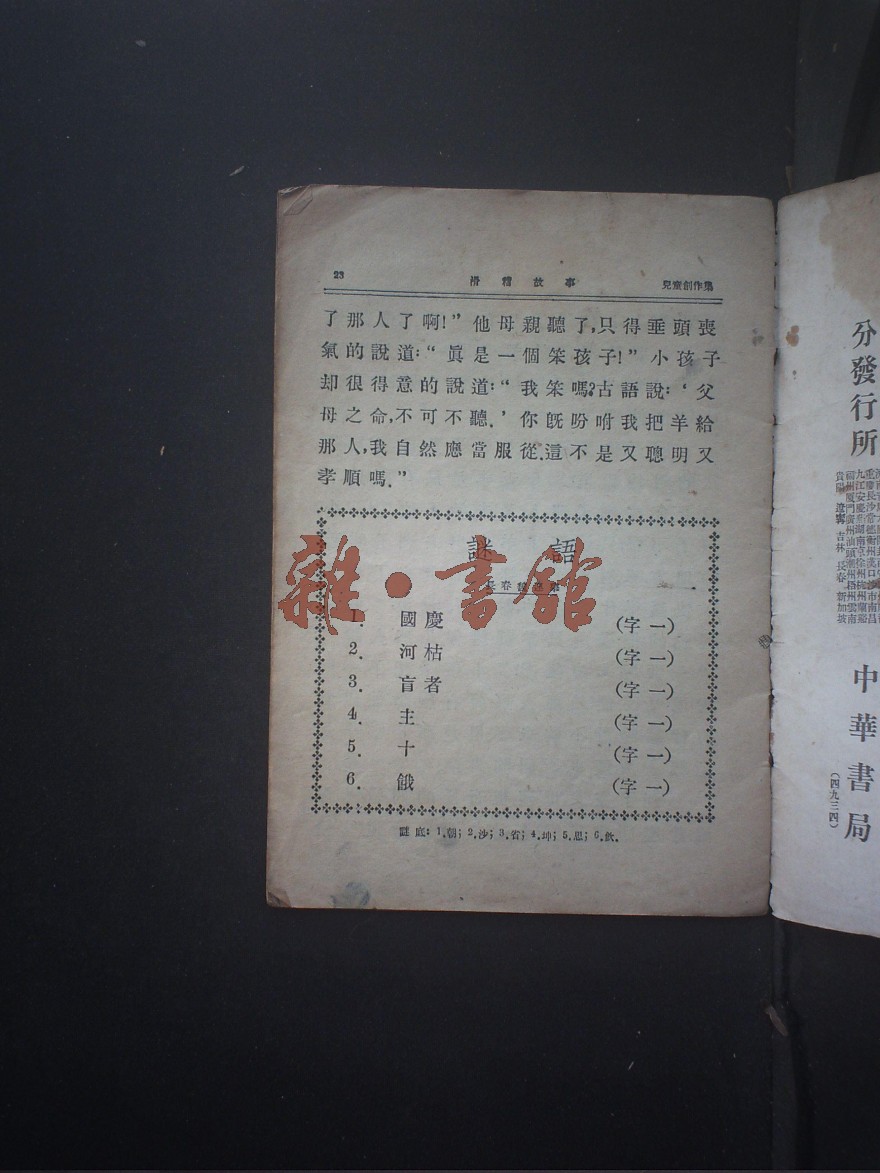 23 滑稽故事 兒童創作集
了那人了啊!”他母親聽了,只得垂頭喪
氣的說道:“眞是一個笨孩子!”小孩子
却很得意的說道:“我笨嗎?古語說:‘父
母之命,不可不聽.’你旣吩咐我把羊給
那人,我自然應當服從.這不是又聰明又
孝順嗎.”
謎語
長春
雜·書館
1. 國慶 (字一)
2. 河枯 (字一)
3. 盲者 (字一)
4. 主 (字一)
5. 十 (字一)
6. 餓 (字一)
謎底:1.朝;2.沙;3.省;4.坤;5.思;6.飲.
分發行所
貴陽 遼寧 吉林 長春 新加坡
中華書局
(四九三四)